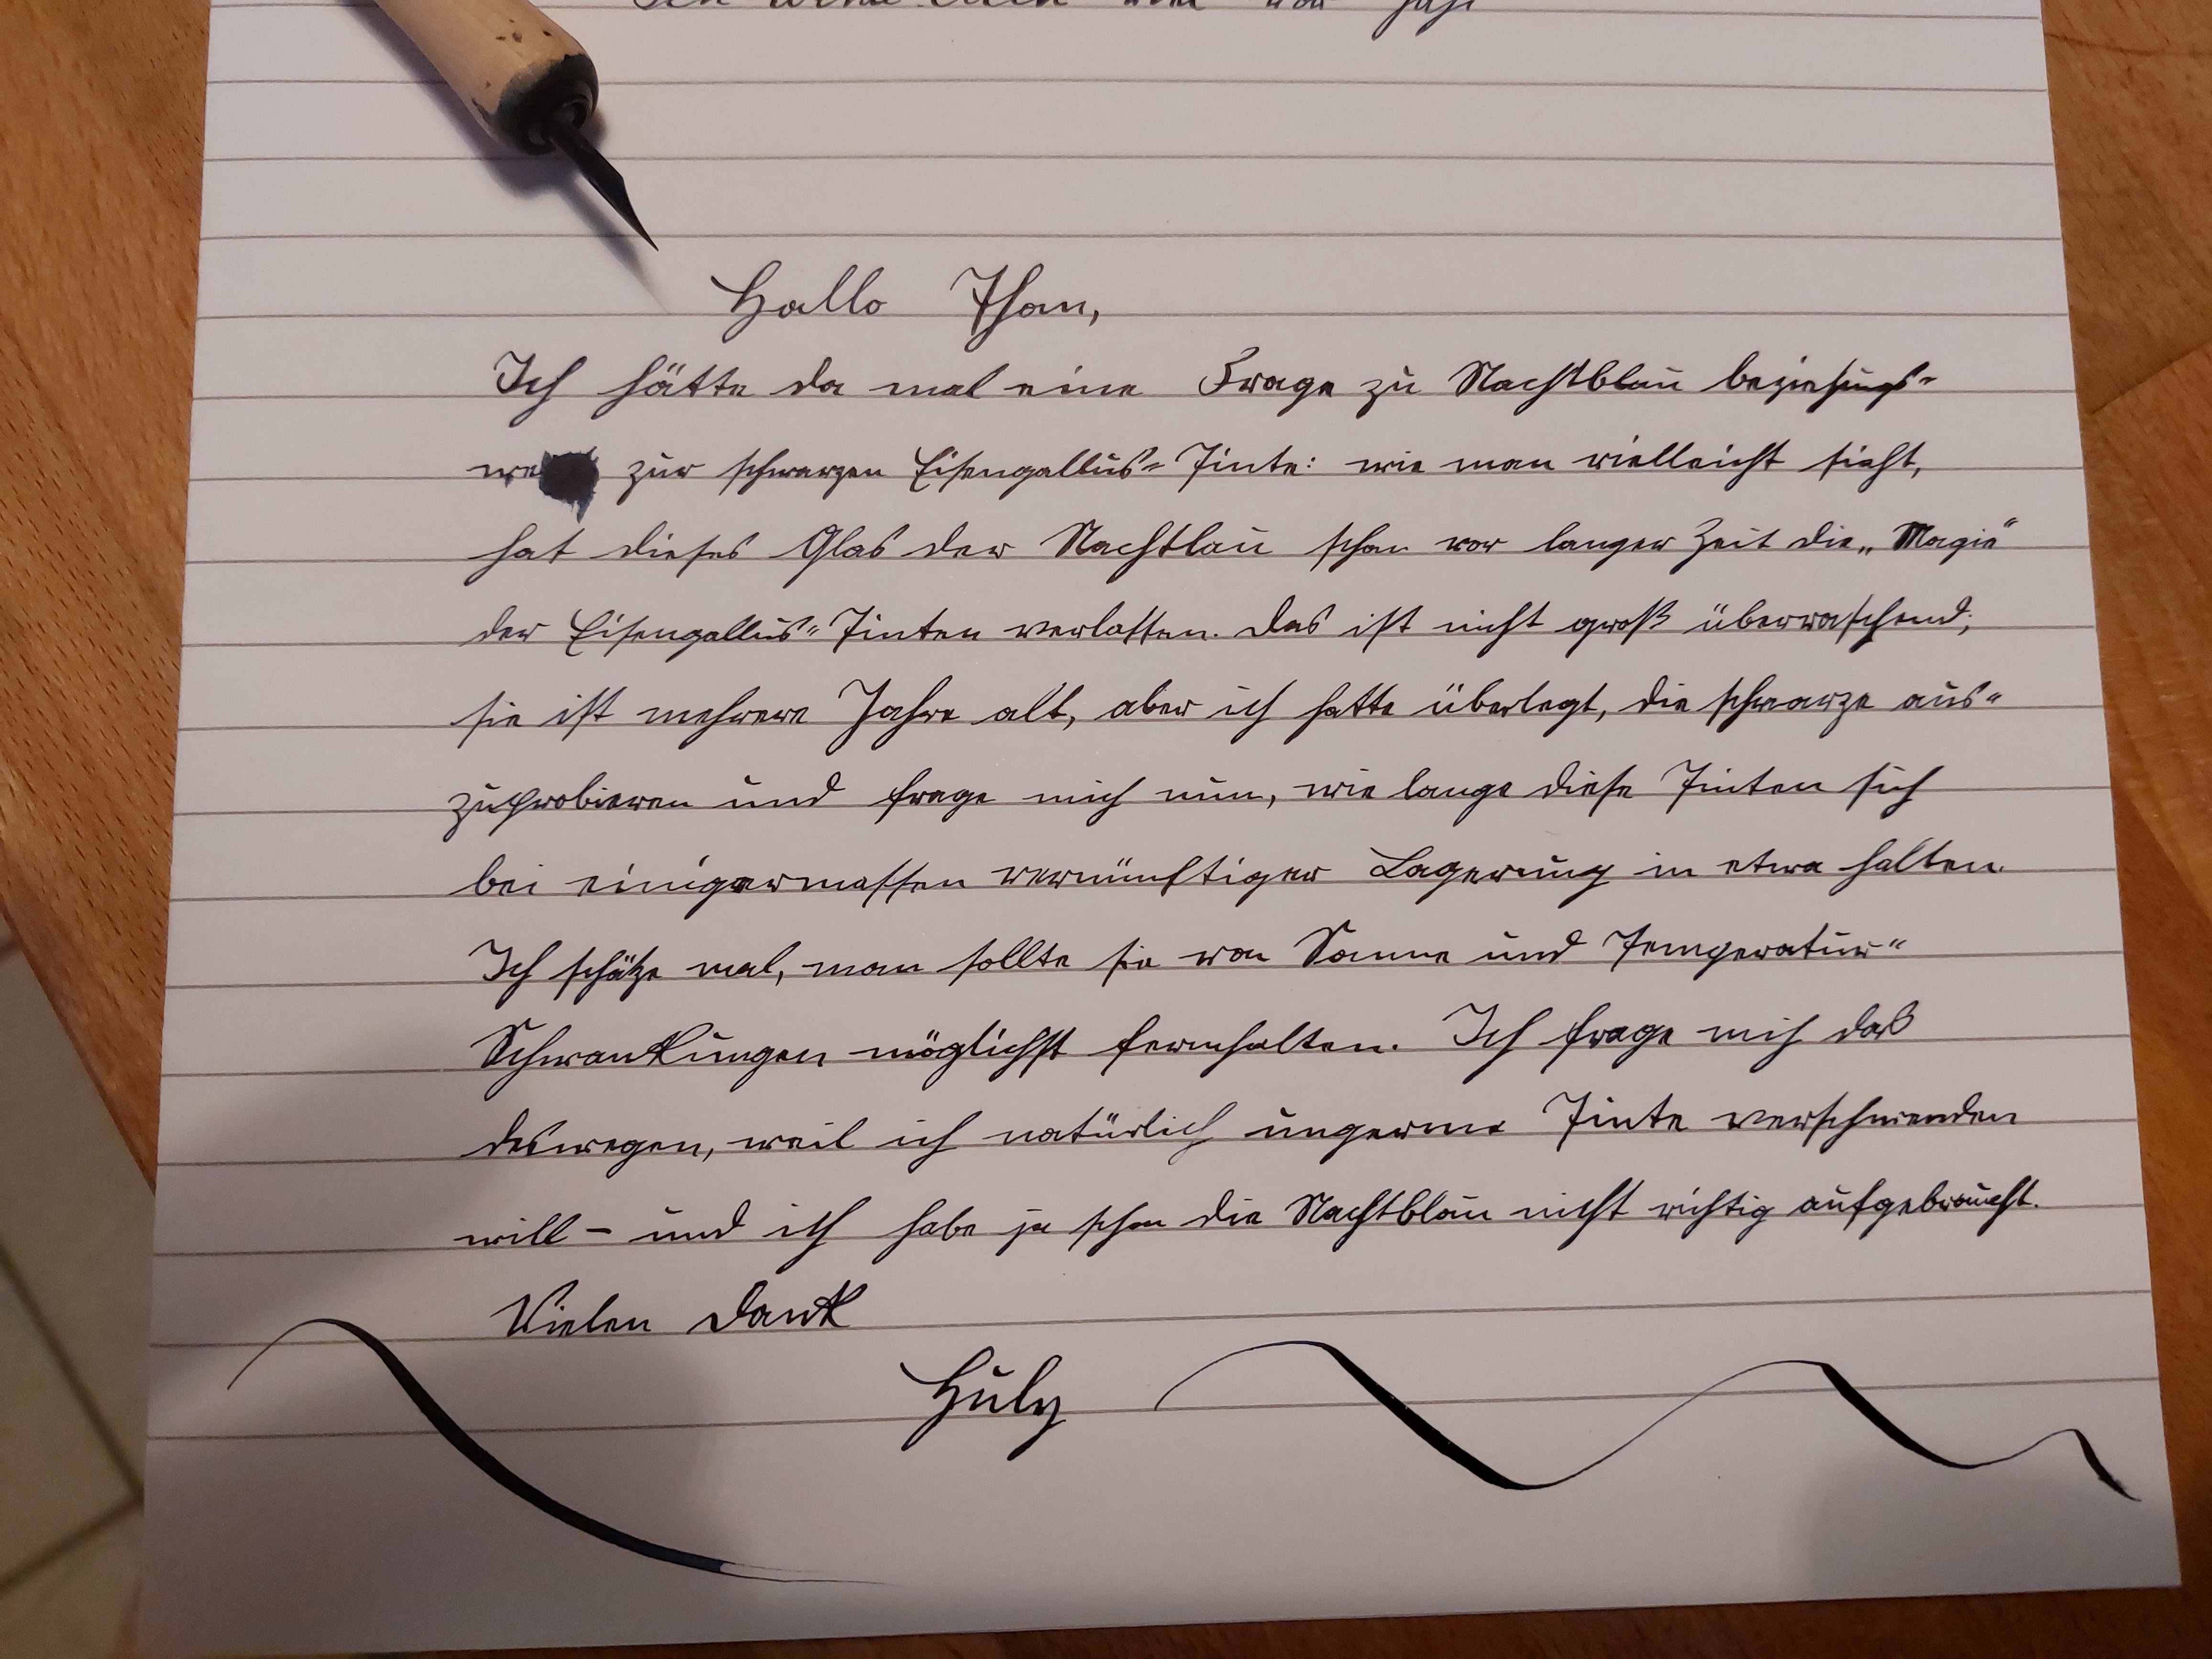 Hallo Jhon,
Ich hätte da mal eine Frage zu Nachtblau beziehungs=
we zur schwarzen Eisengallus=Tinte: wie man vielleicht sieht,
hat dieses Glas der Nachtlau schon vor langer Zeit die „Magie"
der Eisengallus=Tinten verlassen. Das ist nicht groß überraschend;
sie ist mehrere Jahre alt, aber ich hatte überlegt, die schwarze aus=
zuprobieren und frage mich nun, wie lange diese Tinten sich
bei einigermassen vernünftiger Lagerung in etwa halten.
Ich schätze mal, man sollte sie von Sonne und Temperatur=
Schwankungen möglichst fernhalten. Ich frage mich das
deswegen, weil ich natürlich ungerne Tinte verschwenden
will – und ich habe ja schon die Nachtblau nicht richtig aufgebraucht.
Vielen Dank
Huly